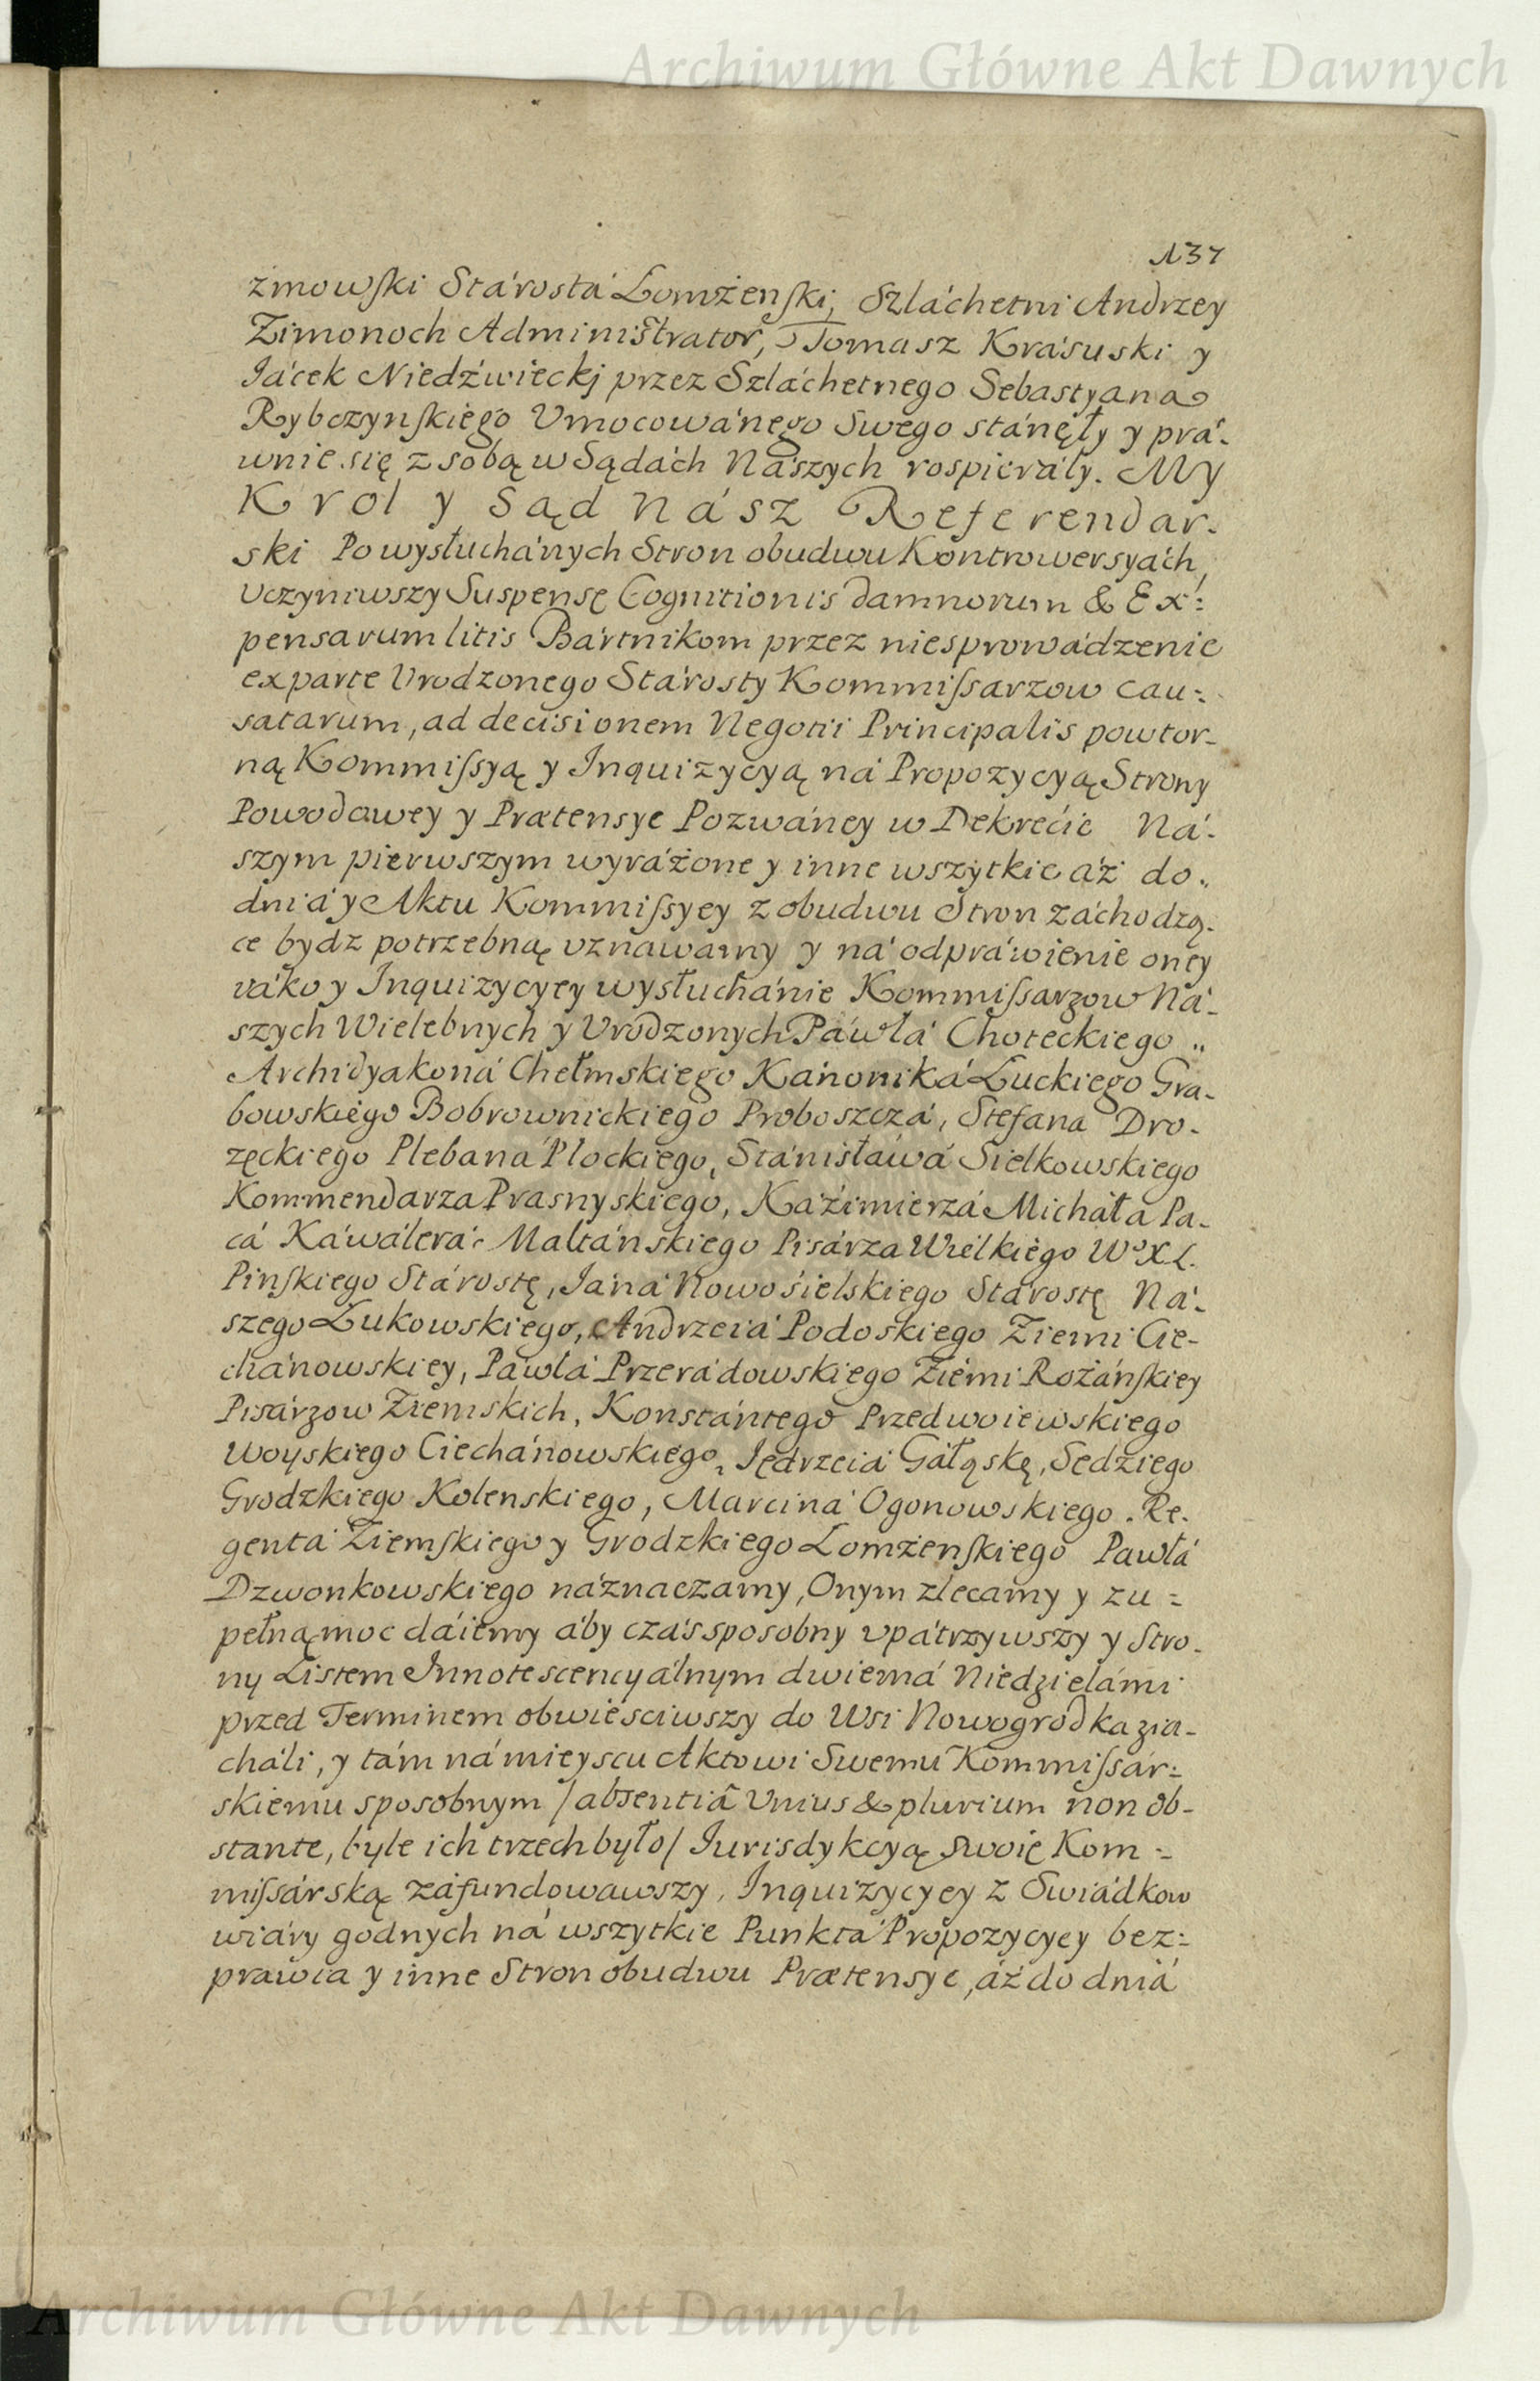 Archiwum Główne Akt Dawnych
137
zmowſki Stárostá Łomżenſki, Szláchetni Andrzey
Zimonoch Administrator, Tomasz Krásuski y
Iácek Niedźwieckj przez Szláchetnego Sebastyana
Rybczynſkiego Vmocowánego Swego stánęły y prá-
wnie się z sobą w Sądách Nászych rospieráły. My
Krol y Sąd nász Referendar-
ski Powysłuchánych Stron obudwu Kontrowersyách,
Vczyniwszy Suspensę Cognitionis damnorum & Ex=
pensarum litis Bártnikom przez niesprowádzenie
ex parte Vrodzonego Stárosty Kommiſsarzow cau=
satarum, ad decisionem Negotii Principalis powtor-
ną Kommiſsyą y Inquizycyą ná Propozycyą Strony
Powodowey y Prætensye Pozwáney w Dekrećie Ná-
szym pierwszym wyráżone y inne wszytkie áż do
dniá y Aktu Kommiſsyey z obudwu Stron záchodzą-
ce bydz potrzebną vznawamy y ná odpráwienie oney
iáko y Inquizycyey wysłuchánie Kommiſsarzow Ná-
szych Wielebnych y Vrodzonych Páwłá Choteckiego
Archidyakoná Chełmskiego Kánoniká Łuckiego Gra-
bowskiego Bobrownickiego Proboszczá, Stefana Dro-
zęckiego Plebaná Płockiego, Stánisłáwá Sielkowskiego
Kommendarza Prasnyskiego, Káźimierzá Micháła Pa-
cá Káwálerá Maltánskiego Pisárza Wielkiego W° X L.
Pinſkiego Stárostę, Iáná Nowośielskiego Stárostę Ná-
szego Łukowskiego, Andrzeiá Podoskiego Ziemi Cie-
chánowskiey, Páwłá Przerádowskiego Ziemi Rożánſkiey
Pisárzow Ziemskich, Konstántego Przedwoiewskiego
Woyskiego Ciechánowskiego, Jędrzeiá Gáłąskę, Sedziego
Grodzkiego Kolenskiego, Marciná Ogonowskiego Re-
gentá Ziemſkiego y Grodzkiego Łomżenſkiego Pawłá
Dzwonkowskiego náznaczamy, Onym zlecamy y zu=
pełną moc dáiemy áby czás sposobny vpátrzywszy y Stro-
ny Listem Innotescencyálnym dwiemá Niedzielámi
przed Terminem obwieściwszy do Wsi Nowogrodka ziá-
cháli, y tám ná mieyscu Aktowi Swemu Kommiſsár=
skiemu sposobnym / absentiâ Vnius & plurium non ob-
stante, byle ich trzech było / Iurisdykcyą swoię Kom=
miſsárską záfundowawszy, Inquizycyey z Swiádkow
wiáry godnych ná wszytkie Punktá Propozycyey bez=
prawia y inne Stron obudwu Prætensye, áż do dniá
Archiwum Główne Akt Dawnych